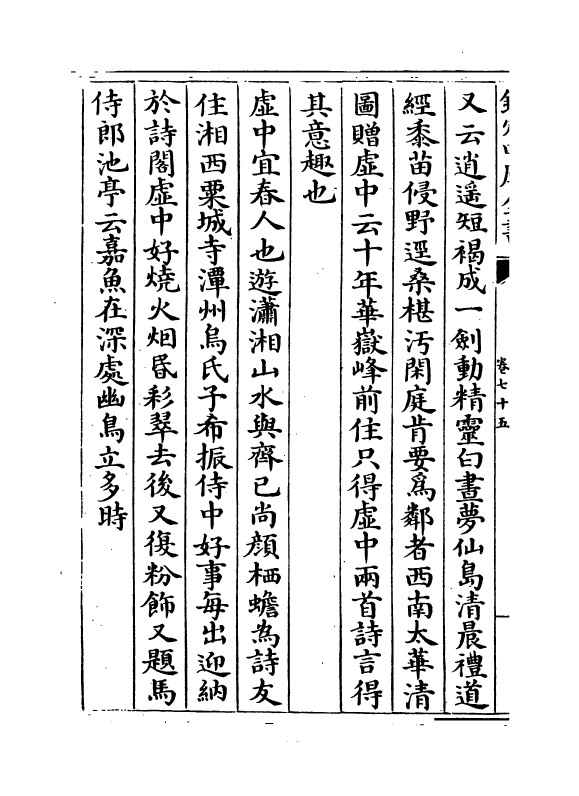 欽定四庫全書
卷七十五
又云逍遥短褐成一劍動精靈白晝夢仙島清晨禮道
經黍苗侵野逕桑椹汚閑庭肯要爲鄰者西南太華清
圖贈虚中云十年華嶽峰前住只得虚中兩首詩言得
其意趣也
虚中宜春人也遊瀟湘山水與齊已尚顔栖蟾為詩友
住湘西粟城寺潭州烏氏子希振侍中好事每出迎納
於詩閣虚中好燒火烟昏彩翠去後又復粉飾又題馬
侍郎池亭云嘉魚在深處幽鳥立多時